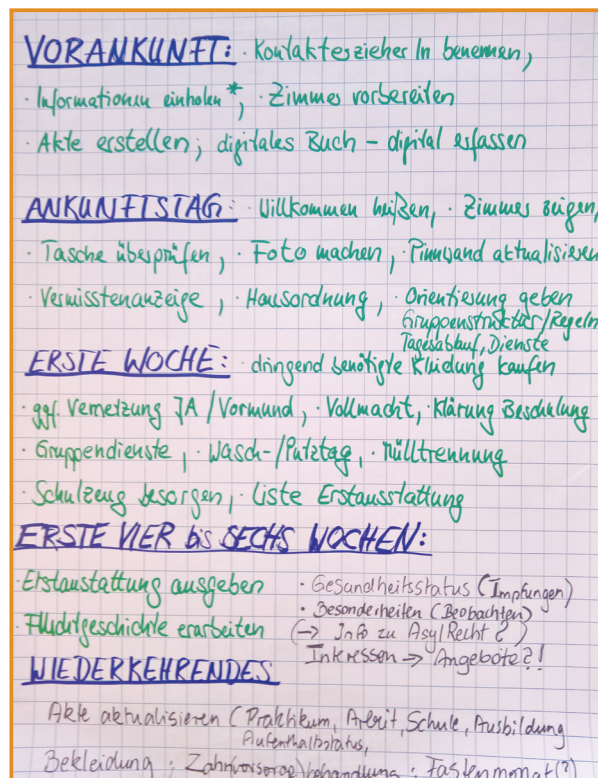 VORANKUNFT: · KontakterzieherIn benennen,
· Informationen einholen*, · Zimmer vorbereiten
· Akte erstellen; digitales Buch – digital erfassen
ANKUNFTSTAG: · Willkommen heißen, · Zimmer zeigen,
· Tasche überprüfen, · Foto machen, · Pinnwand aktualisieren
· Vermisstenanzeige, · Hausordnung, · Orientierung geben
Gruppenstruktur/Regeln
Tagesablauf, Dienste
ERSTE WOCHE: · dringend benötigte Kleidung kaufen
· ggf. Vernetzung JA/Vormund, · Vollmacht, · Klärung Beschulung
· Gruppendienste, · Wasch-/Putztag, · Mülltrennung
· Schulzeug besorgen, · Liste Erstausstattung
ERSTE VIER bis SECHS WOCHEN:
· Erstaustattung ausgeben · Gesundheitsstatus (Impfungen)
• Besonderheiten (Beobachten)
· Fluchtgeschichte erarbeiten (→ Info zu AsylRecht?)
Interessen → Angebote?!
WIEDERKEHRENDES
Akte aktualisieren (Praktikum, Arbeit, Schule, Ausbildung
Aufenthaltstatus,
Bekleidung; Zahnvorsorge/behandlung; Fastenmonat(?)